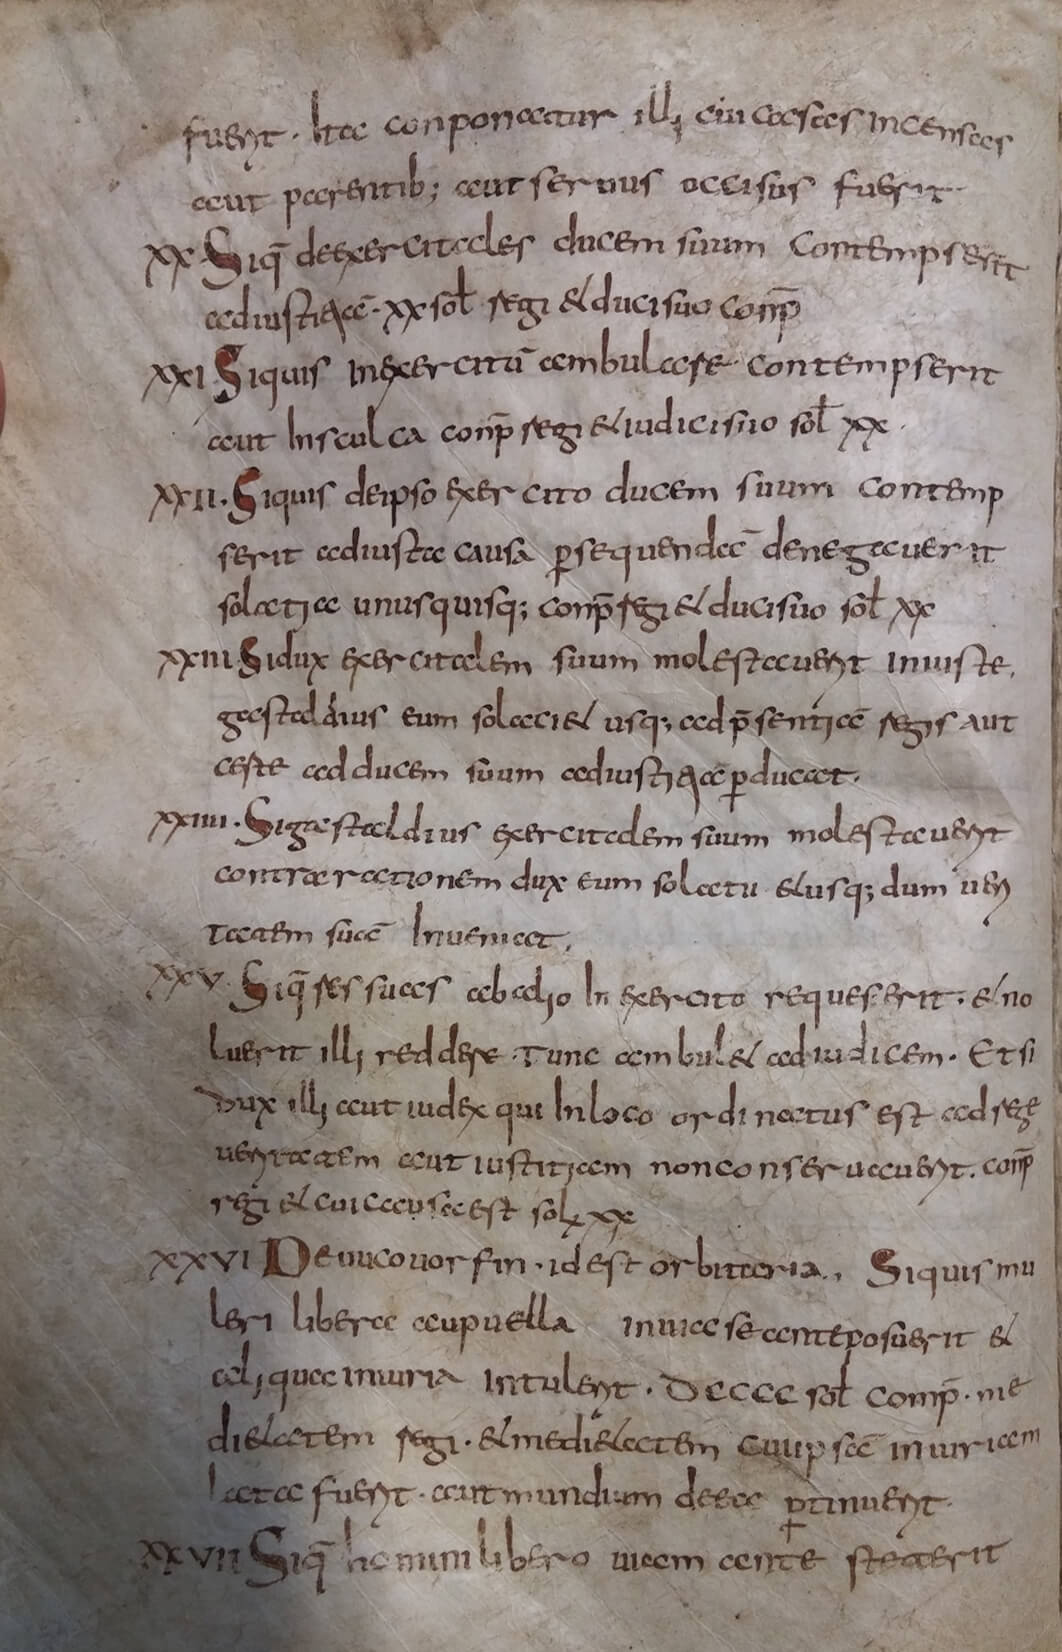 fuerit. Ita conponatur illi cui casas incensas
aut parentib; aut seruus occisus fuerit.
XX Siq̄ de exercitales ducem suum contempserit
ad iustitiā. XX sol regi et duci suo conp̄
XXI Siquis in exercitū ambulare contempserit
aut In sculca conp̄ regi et iudici suo sol XX.
XXII. Siquis de ipso exercito ducem suum contemp
serit ad iusta causa ꝑsequendā denegauerit
solatia unusquisq; conp̄ regi et duci suo sol XX
XXIII Si dux exercitalem suum molestauerit iniuste.
gastaldius eum solaciet usq; ad p̄sentiā regis aut
certe ad ducem suum ad iustitia ꝑducat.
XXIIII. Si gastaldius exercitalem suum molestauerit
contra rationem dux eum solatu et usq; dum ueri
tatem suā Inueniat.
XXV. Siq̄ res suas ab alio In exercito requeserit. et no
luerit illi reddere. Tunc ambulet ad iudicem. Et si
Dux illi aut iudex qui In loco ordinatus est ad rege
ueritatem aut iustitiam non conseruauerit. conp̄
regi et cui causa est sol XX
XXVI De uucouorfin. id est orbitaria. Siquis mu
leri libera au puella in uia se anteposuerit et
aliqua iniuria intulerit. DCCCC sol comp̄. me
dietatem regi. et medietatem cui ipsā iniuriam
lata fuerit. aut mundium de ea ꝑtinuerit.
XXVII Siq̄ homini libero uiam ante steterit